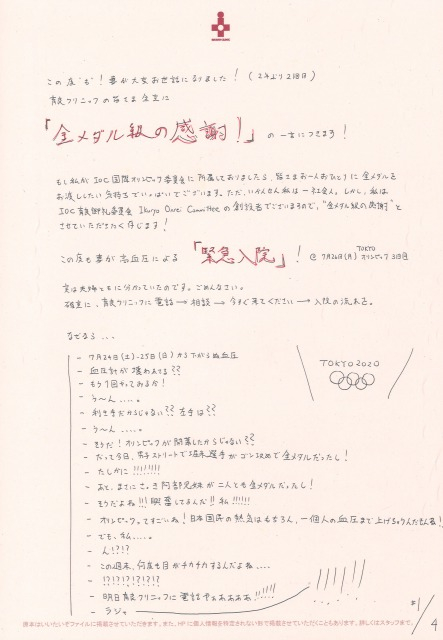 この度"も"! 妻が大変お世話になりました! (2年ぶり2回目)
育良クリニックの皆さま全員に
「金メダル級の感謝!」の一言につきます!
もし私がIOC国際オリンピック委員会に所属しておりましたら、皆さまお一人おひとりに金メダルを
お渡ししたい気持ちでいっぱいでございます。ただ、いかんせん私は一社会人。しかし、私は
IOC育良御礼委員会 Ikuryo Onrei Committeeの創設者でございますので、"金メダル級の感謝"と
させていただきたく存じます!
この度も妻が高血圧による「緊急入院」! @ 7月26日(月) TOKYOオリンピック3日目
実は夫婦ともに分かっていたのです。ごめんなさい。
確実に、育良クリニックに電話→相談→今すぐ来てください→入院の流れを。
なぜなら...
- 7月24日(土)-25日(日)から下がらぬ血圧
- 血圧計が壊れてる??
- もう1回やってみるか!
- う〜ん....。
- 利き手だからじゃない?? 左手は??
- う〜ん....。
- そうだ! オリンピックが開幕したからじゃない??
- だって今日、男子ストリートで堀米選手がゴン攻めで金メダルだったし!
- たしかに!!!!!!!!
- あと、まさにさっき阿部兄妹が二人とも金メダルだったし!
- そうだよね!!! 興奮してるんだ!! 私!!!!!!
- オリンピックってすごいね! 日本国民の熱気はもちろん、一個人の血圧まで上げちゃうんだもんね!
- でも、私....。
- ん!?!?
- この週末、何度も目がチカチカするんだよね....
- !?!?!?!?!?!?
- 明日育良クリニックに電話やぁああある!!!!!
- ラジャ
TOKYO 2020
#1/4
原本はいいたいぞファイルに掲載させていただきます。また、HPに個人情報を特定されない形で掲載させていただくこともあります。詳しくはスタッフまで。